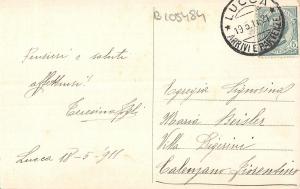 B105484
LUCCA
ARRIVI E PARTENZE
Pensieri e saluti
affettuosi!
Lucca 18-5-911
Egregia Signorina
Maria Beisler
Villa Pigerini
Calenzano Fiorentino